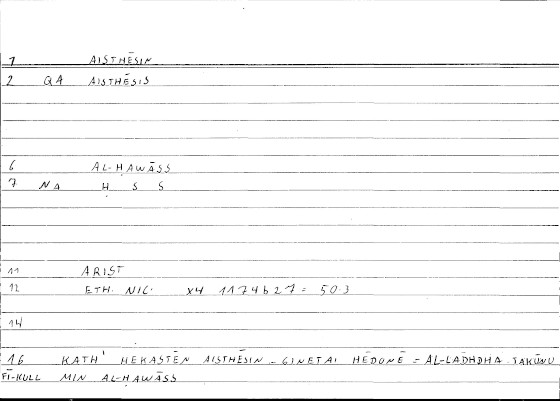 1 AISTHĒSIN
2 QA AISTHĒSIS
6 AL-ḤAWĀSS
7 NA Ḥ S S
11 ARIST
12 ETH. NIC. X4 1174b27 = 50.3
14
16 KATH' HEKASTĒN AISTHĒSIN - GINETAI HĒDONĒ = AL-LADHDHA TAKŪNU
FĪ-KULL MIN AL-ḤAWĀSS